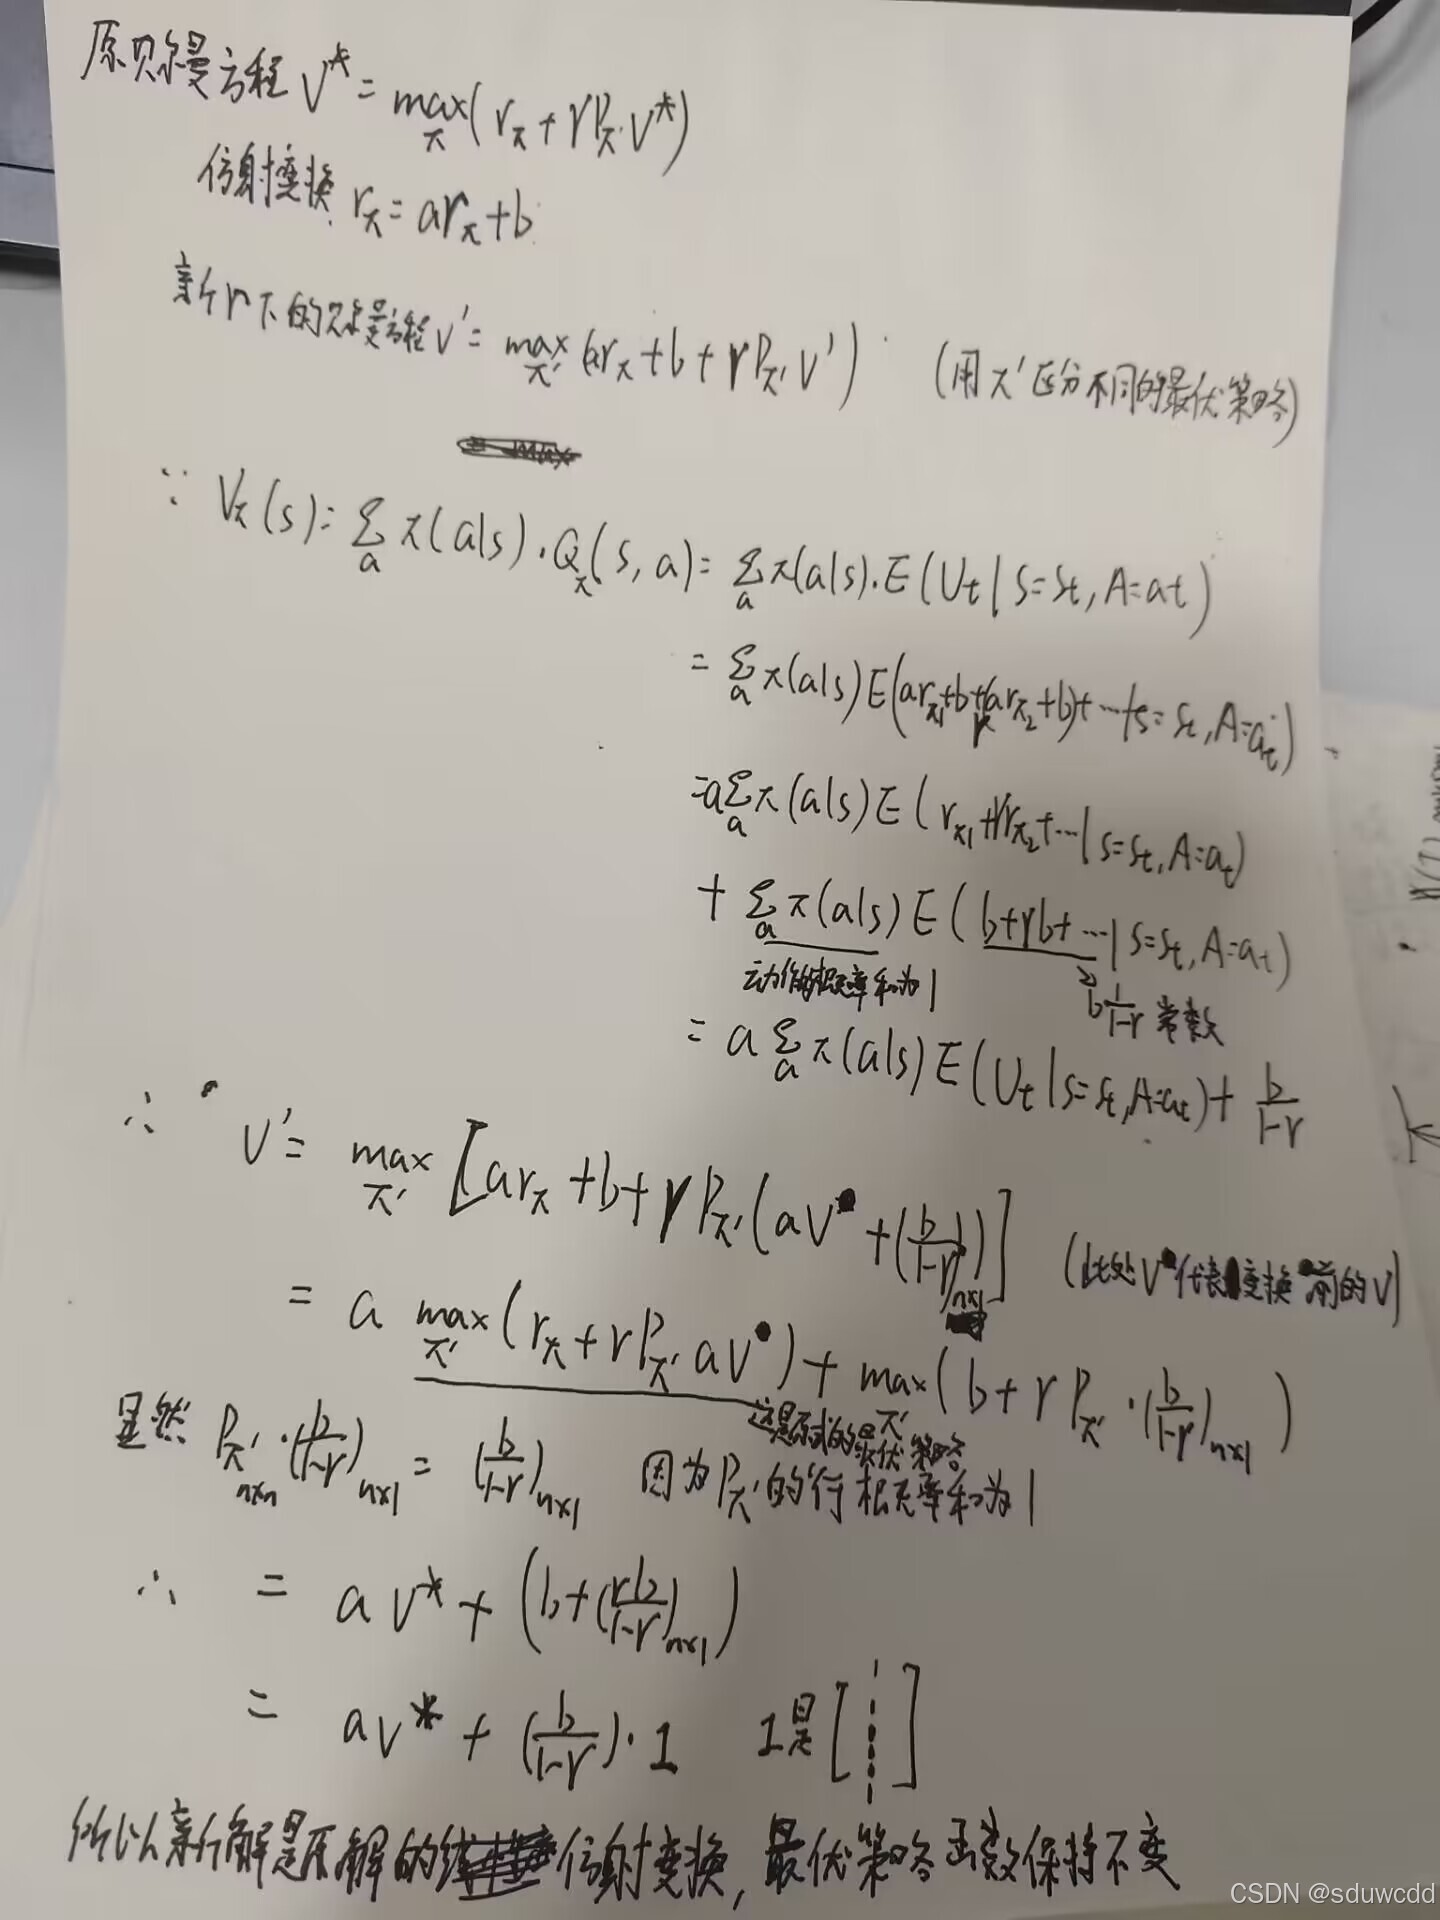 原贝尔曼方程 V* = max_π (r_π + γP_π·V*)
仿射变换 r_π = ar_π + b
新r下的贝尔曼方程 V' = max_π' (ar_π + b + γP_π' V') (用π'区分不同的最优策略)
∵ V_π(s) = Σ_a π(a|s)·Q_π(s, a) = Σ_a π(a|s)·E(U_t | S=s_t, A=a_t)
= Σ_a π(a|s) E(ar_π1 + b + γ(ar_π2 + b) + ⋯ | S=s_t, A=a_t)
= a Σ_a π(a|s) E(r_π1 + γr_π2 + ⋯ | S=s_t, A=a_t)
+ Σ_a π(a|s) E(b + γb + ⋯ | S=s_t, A=a_t)
动作的概率和为1 b 1/(1-γ) 常数
= a Σ_a π(a|s) E(U_t | S=s_t, A=a_t) + b/(1-γ)
∴ V' = max_π' [ar_π + b + γP_π' (aV + (b/(1-γ))_{n×1})] (此处V代表变换前的V)
= a max_π' (r_π + γP_π' aV) + max_π' (b + γP_π'·(b/(1-γ))_{n×1})
这是原式的最优策略
显然 P_π' n×n ·(b/(1-γ))_{n×1} = (b/(1-γ))_{n×1} 因为P_π'的行概率和为1
∴ = aV* + (b + (γb/(1-γ))_{n×1})
= aV* + (b/(1-γ))·1 1是[ ]
所以新解是原解的仿射变换, 最优策略函数保持不变
CSDN @sduwcdd